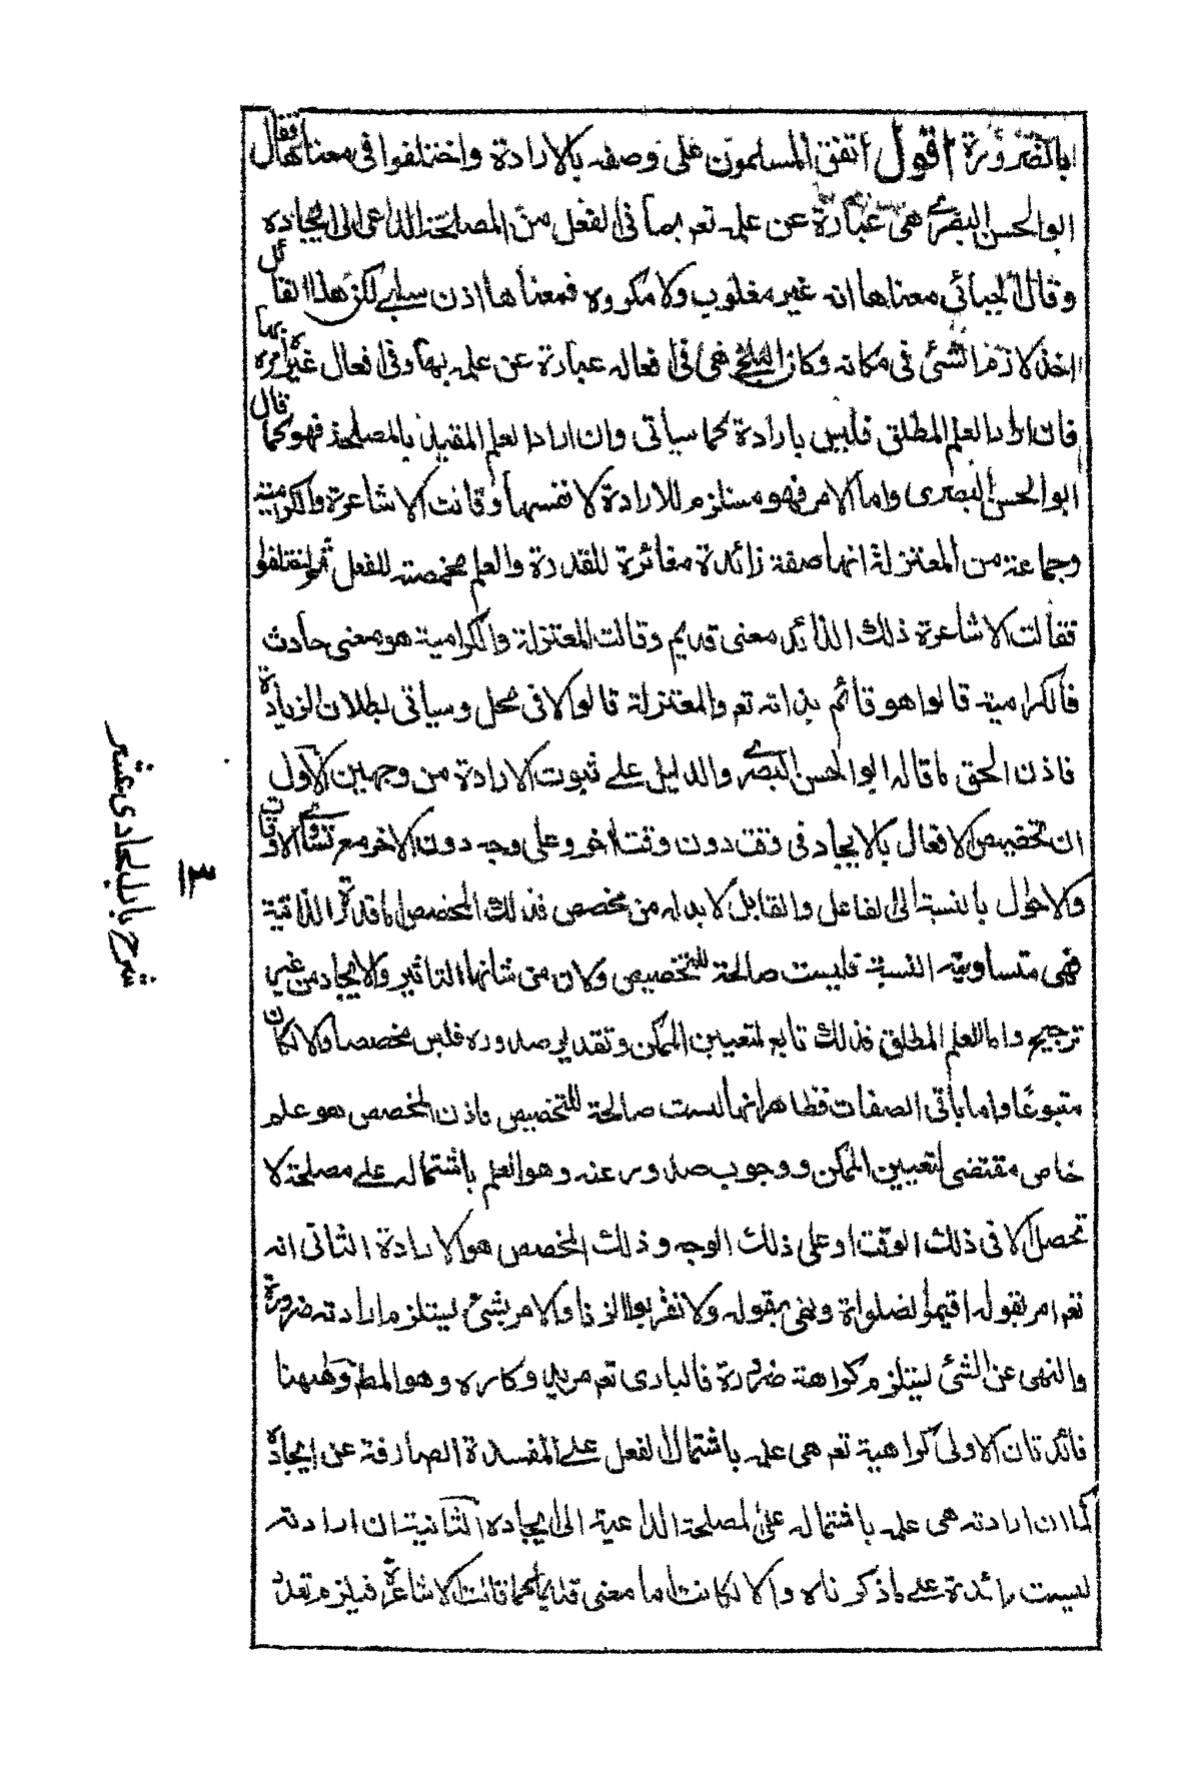 بالضرورة اقول اتفق المسلمون على وصفه بالارادة واختلفوا فى معناها فقال
ابو الحسن البصرى هى عبارة عن علمه تعم بما فى الفعل من المصلحة الداعى الى ايجاده
وقال الجبائى معناها انه غير مغلوب ولا مكروه فمعناها اذن سلبى لكن هذا القائل
اخذ لازم الشئى فى مكانه وكان البلخى هى فى افعاله عبارة عن علمه بها وفى افعال غيره امره بها
فان اراد العلم المطلق فليس بارادة كما سياتى وان اراد العلم المقيد بالمصلحة فهو كما قال
ابو الحسن البصرى واما الامر فهو مستلزم للارادة لا نفسها وقالت الاشاعرة والكرامية
وجماعة من المعتزلة انها صفة زائدة مغائرة للقدرة والعلم مخصصة للفعل ثم اختلفوا
فقالت الاشاعرة ذلك الزائد معنى قديم وقالت المعتزلة والكرامية هو معنى حادث
فالكرامية قالوا هو قائم بذاته تعم والمعتزلة قالوا لا فى محل وسياتى بطلان الزيادة
فاذن الحق ما قاله ابو الحسن البصرى والدليل على ثبوت الارادة من وجهين الاول
ان تخصيص الافعال بالايجاد فى وقت دون وقت اخر وعلى وجه دون الاخر مع تساوى الاوقات
والاحوال بالنسبة الى الفاعل والقابل لا بد له من مخصص فذلك المخصص اما قدرة الذاتية
فهى متساوية النسبة فليست صالحة للتخصيص ولان من شانها التاثير والايجاد من غير
ترجيح واما العلم المطلق فذلك تابع لتعيين الممكن وتقدير صدوره فليس مخصصا والا لكان
متبوعا واما باقى الصفات فظاهر انها ليست صالحة للتخصيص فاذن المخصص هو علم
خاص مقتضى لتعيين الممكن ووجوب صدوره عنه وهو العلم باشتماله على مصلحة لا
تحصل الا فى ذلك الوقت او على ذلك الوجه وذلك المخصص هو الارادة الثانى انه
تعم امر بقوله اقيموا الصلواة ونهى بقوله ولا تقربوا الزنا والامر بشئى يستلزم ارادته ضرورة
والنهى عن الشئى يستلزم كراهة ضرورة فالبارى تعم مريد وكاره وهو المط وههنا
فائدتان الاولى كراهية تعم هى علمه باشتمال الفعل على المفسدة الصارفة عن ايجاده
كما ان ارادته هى علمه باشتماله على المصلحة الداعية الى ايجاده الثانية ان ارادته
ليست زائدة على ما ذكرناه والا لكانت اما معنى قديما كما قالت الاشاعرة فيلزم تعدد
شرح باب الحادى عشر